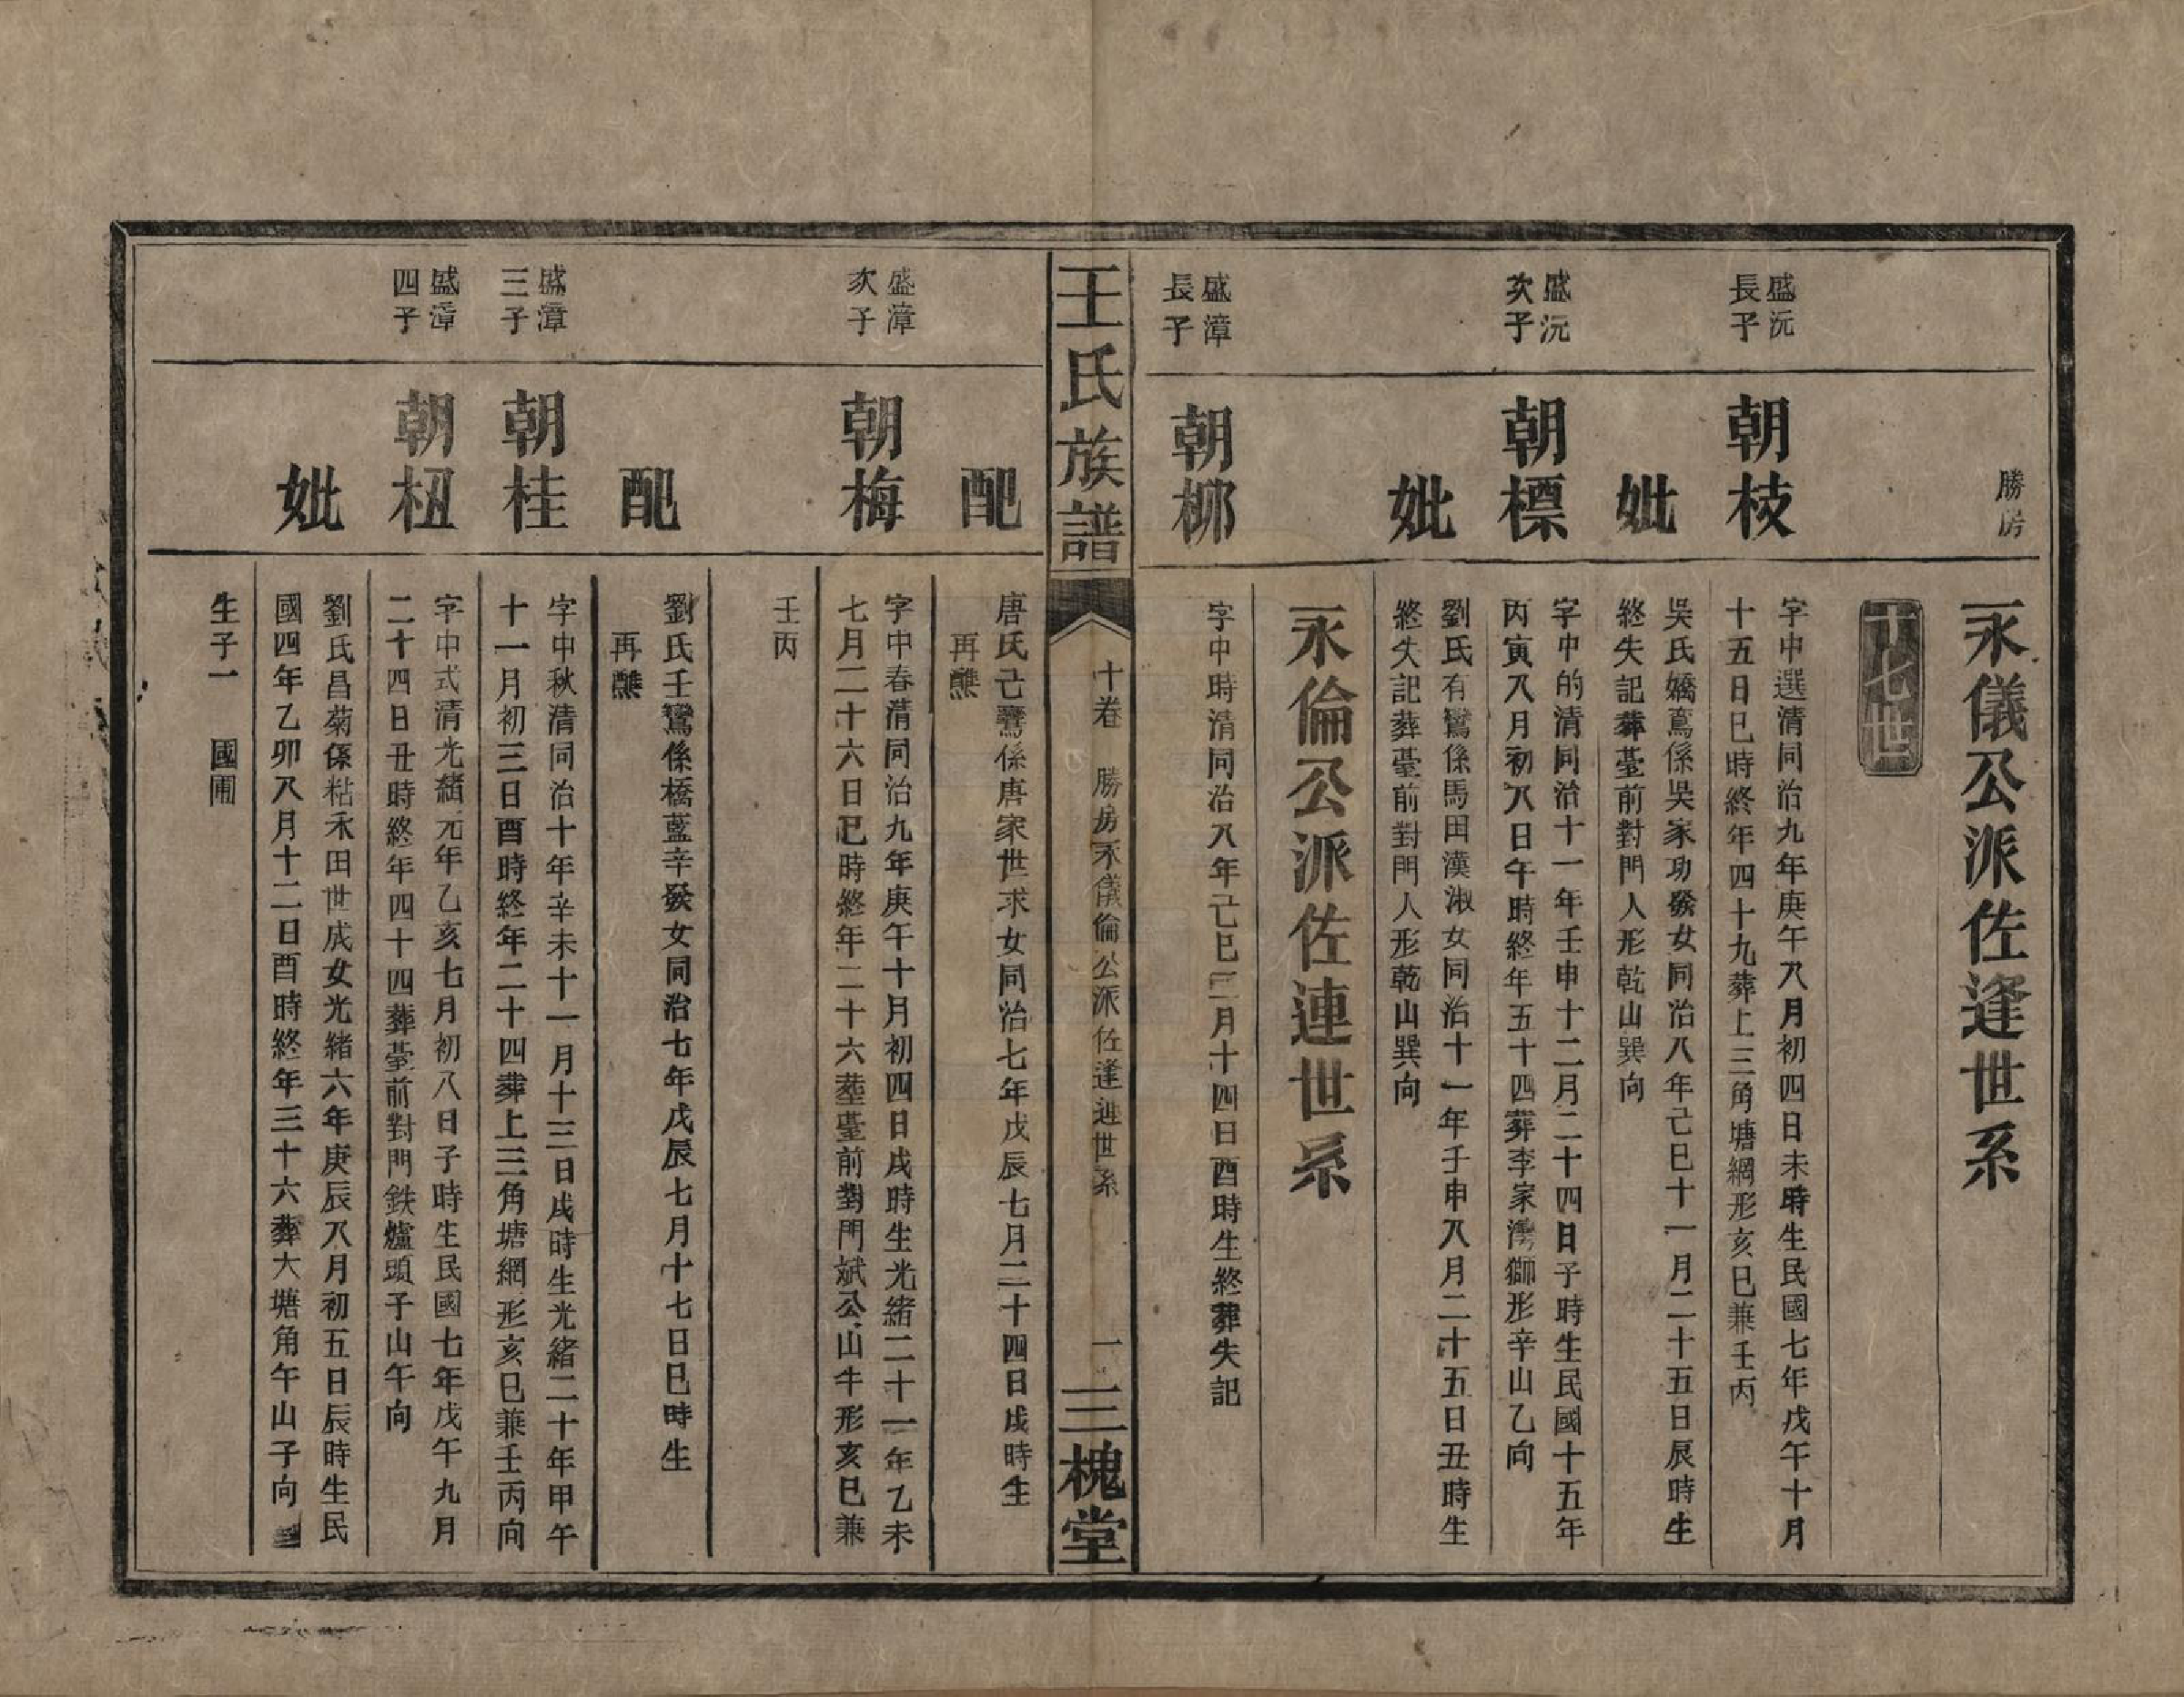 勝房
永儀公派佐逢世系
十七世
盛沅長子
朝枝
字中選清同治九年庚午八月初四日未時生民國七年戊午十月
十五日巳時終年四十九葬上三角塘網形亥巳兼壬丙
妣
吳氏嬌鳶係吳家功發女同治八年己巳十一月二十五日辰時生
終失記葬臺前對門人形乾山巽向
盛沅次子
朝標
字中的清同治十一年壬申十二月二十四日子時生民國十五年
丙寅八月初八日午時終年五十四葬李家灣獅形辛山乙向
妣
劉氏有鸞係馬田漢淑女同治十一年壬申八月二十五日丑時生
終失記葬臺前對門人形乾山巽向
永倫公派佐連世系
盛漳長子
朝柳
字中時清同治八年己巳二月十四日酉時生終葬失記
王氏族譜
十卷
勝房永儀倫公派佐逢連世系
一
三槐堂
配
唐氏己鸞係唐家世求女同治七年戊辰七月二十四日戌時生
再醮
盛漳次子
朝梅
字中春清同治九年庚午十月初四日戌時生光緒二十一年乙未
七月二十六日巳時終年二十六葬臺前對門斌公山牛形亥巳兼
壬丙
配
劉氏壬鸞係橋藍辛發女同治七年戊辰七月十七日巳時生
再醮
盛漳三子
朝桂
字中秋清同治十年辛未十一月十三日戌時生光緒二十年甲午
十一月初三日酉時終年二十四葬上三角塘網形亥巳兼壬丙向
盛漳四子
朝杻
字中式清光緒元年乙亥七月初八日子時生民國七年戊午九月
二十四日丑時終年四十四葬臺前對門鉄爐頭子山午向
妣
劉氏昌菊係粘禾田世成女光緒六年庚辰八月初五日辰時生民
國四年乙卯八月十二日酉時終年三十六葬大塘角午山子向
生子一　國圃